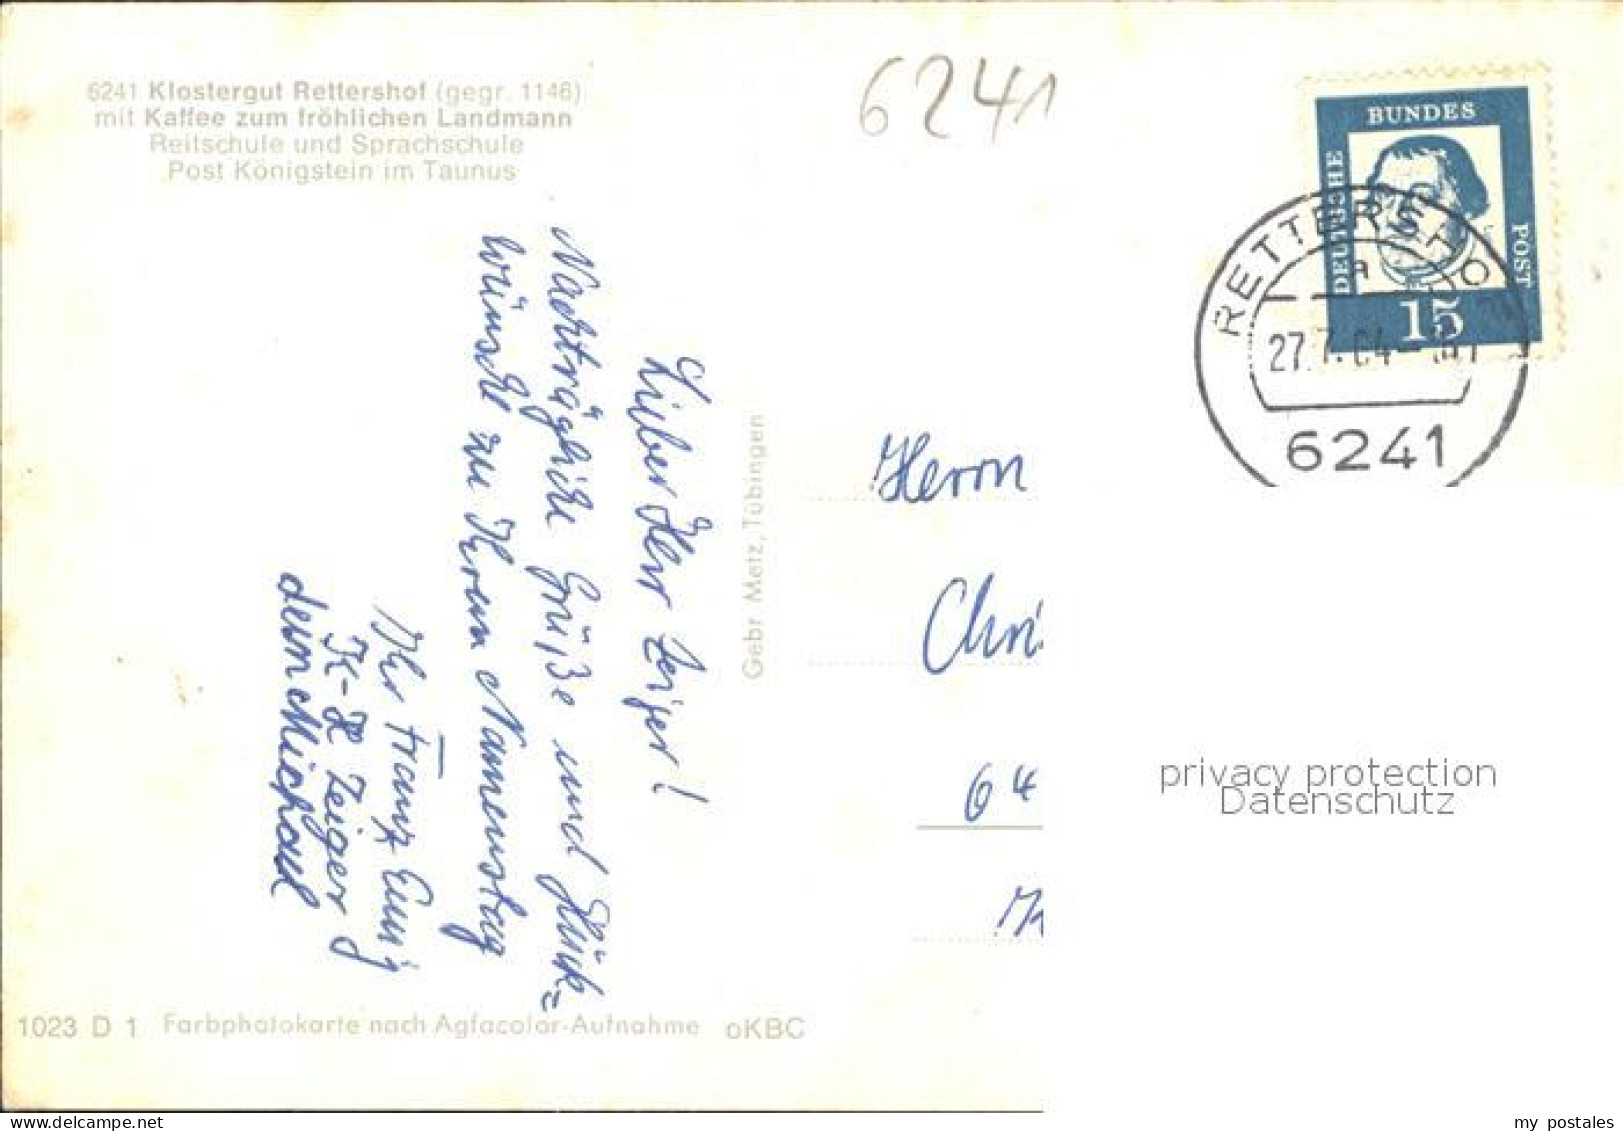 6241 Klostergut Rettershof (gegr. 1146)
mit Kaffee zum fröhlichen Landmann
Reitschule und Sprachschule
Post Königstein im Taunus
6241
DEUTSCHE
BUNDES
POST
15
RETTERSHOF
a
27.7.64
6241
Lieber Herr Zeiger!
Nachträgliche Grüße und Glück=
wünsche zu Ihrem Namenstag
Ihr Franz
K-H Zeiger
dein Michael
Gebr. Metz, Tübingen
Herrn
Chri
64
privacy protection
Datenschutz
1023 D 1 Farbphotokarte nach Agfacolor-Aufnahme oKBC
www.delcampe.net
my_postales